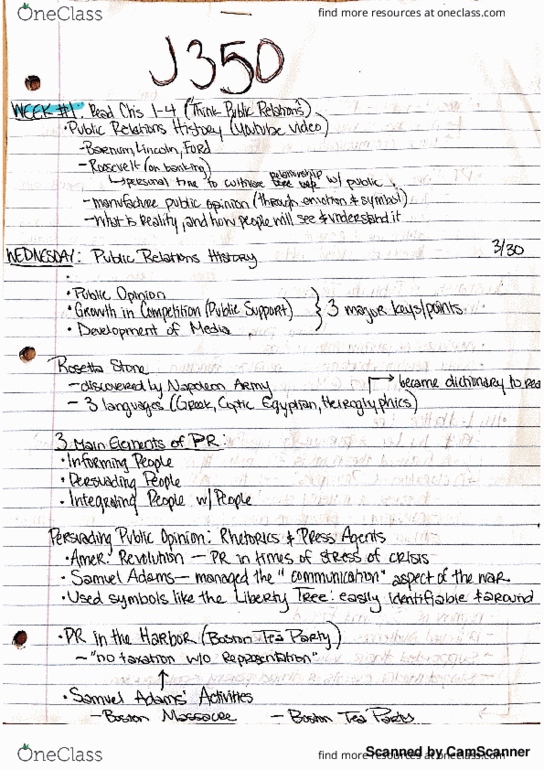 OneClass
find more resources at oneclass.com
J350
WEEK #1: Read Chs 1-4 ("Think Public Relations")
• Public Relations History (Youtube video)
- Barnum, Lincoln, Ford
- Roosevelt (on banking)
relationship
↳ personal time to cultivate w/ public
- manufacture public opinion (through emotion & symbol)
- What is Reality, and how people will see & understand it
WEDNESDAY: Public Relations History 3/30
•
• Public Opinion
• Growth in Competition (Public Support) } 3 major keys/points
• Development of Media
Rosetta Stone
- discovered by Napoleon Army → became dictionary to rea
- 3 languages (Greek, Coptic Egyptian, Heiroglyphics)
3 Main Elements of PR:
• Informing People
• Persuading People
• Integrating People w/ People
Persuading Public Opinion: Rhetorics & Press Agents
• Amer. Revolution — PR in times of stress of crisis
• Samuel Adams — managed the "communication" aspect of the war
• Used symbols like the Liberty Tree: easily identifiable & around
• PR in the Harbor (Boston Tea Party)
- "no taxation w/o Representation"
↑
• Samuel Adams' Activities
- Boston Massacre - Boston Tea Party
OneClass
find more resources at oneclass.com
Scanned by CamScanner